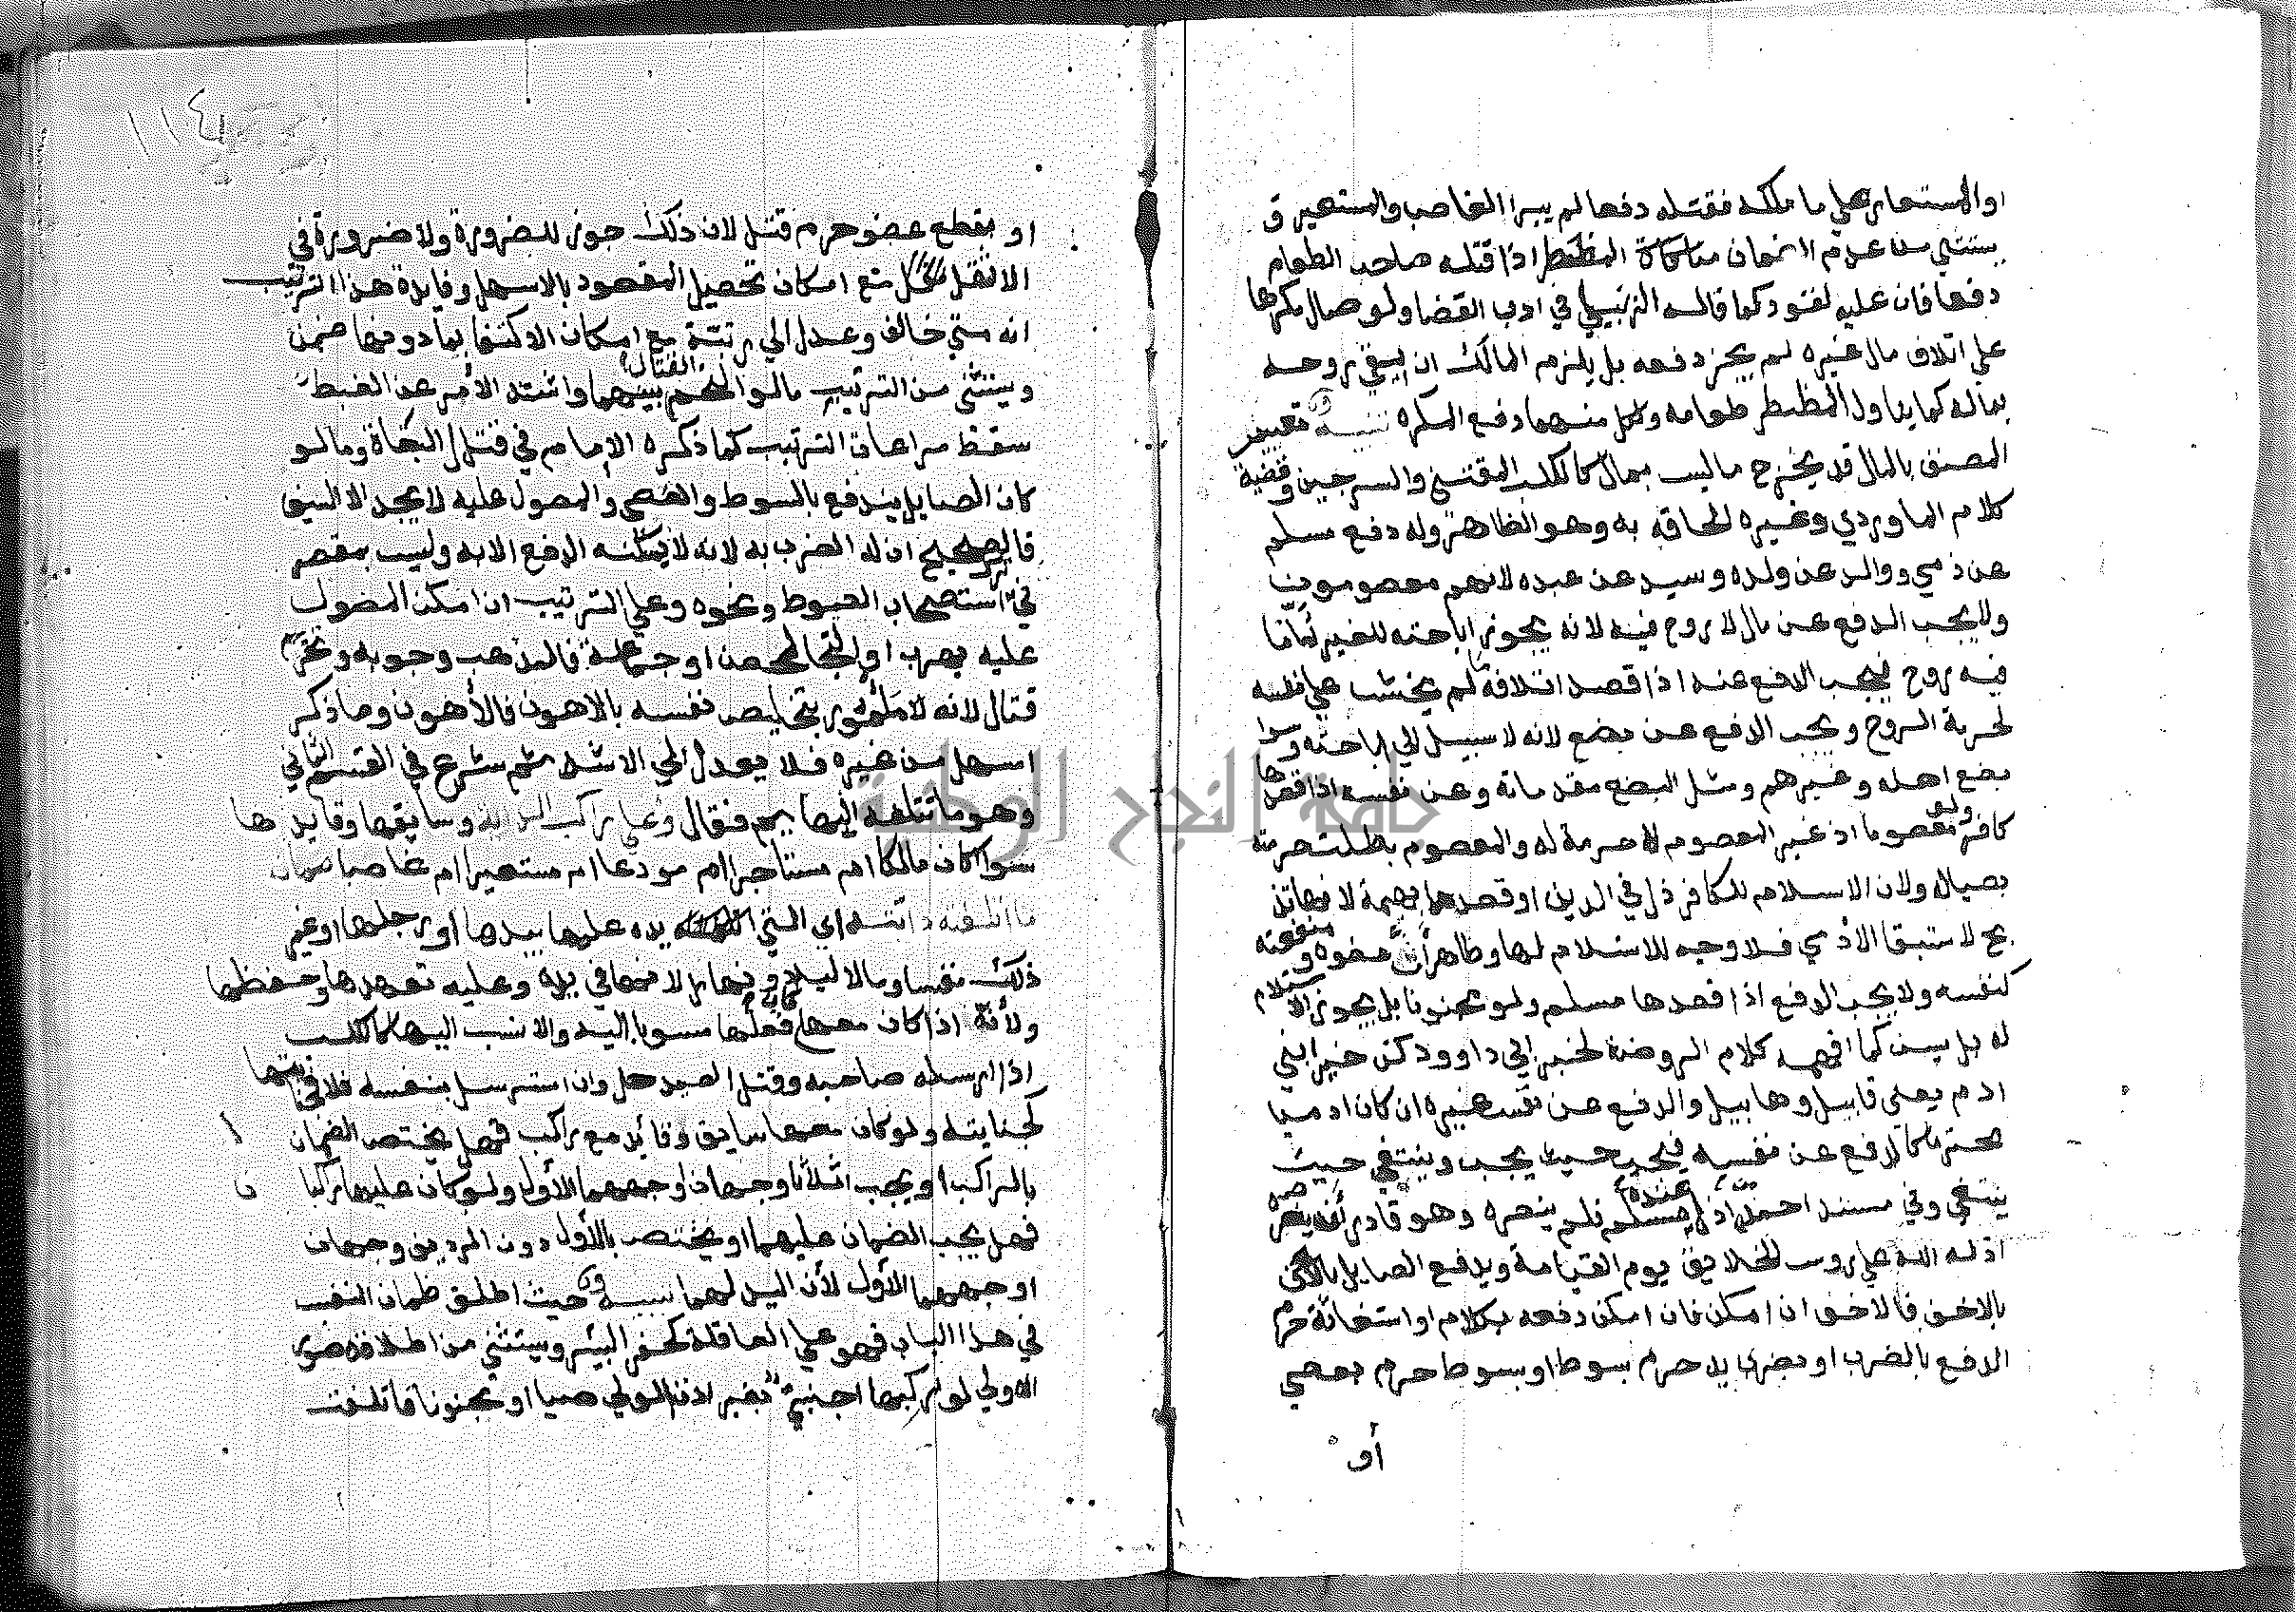 او المستعار على ما ملكه فقتله دفعا لم يبرا الغاصب والمستعير و
يستثنى من عدم الضمان مسالة المضطر اذا قتله صاحب الطعام
دفعا فان عليه القود كما قاله الزبيلي في ادب القضا ولو صال مكرها
على اتلاف مال غيره لم يجز دفعه بل يلزم المالك ان يقي روحه
بماله كما يناول المضطر طعامه ولكل منهما دفع المكره تنبيه تعبير
المصنف بالمال قد يخرج ما ليس بمال كالكلب المقتنى والسرجين وقضية
كلام الماوردي وغيره الحاقه به وهو الظاهر وله دفع مسلم
عن ذمي ووالد عن ولده وسيد عن عبده لانهم معصومون
ولا يجب الدفع عن مال لا روح فيه لانه يجوز اباحته للغير اما ما
فيه روح فيجب الدفع عنه اذا قصد اتلافه ما لم يخش على نفسه
لحرمة الروح ويجب الدفع عن بضع لانه لا سبيل الى اباحته وسوا
بضع اهله وغيرهم ومثل البضع مقدماته وعن نفسه اذا قصدها
كافر ولو معصوما اذ غير المعصوم لا حرمة له والمعصوم بطلت حرمته
بصياله ولان الاستسلام للكافر ذل في الدين او قصدها بهيمة لانها تذ
بح لاستبقا الادمي فلا وجه للاستسلام لها وظاهر ان عضوه ومنفعته
كنفسه ولا يجب الدفع اذا قصدها مسلم ولو مجنونا بل يجوز الاستسلام
له بل يسن كما افهمه كلام الروضة لخبر ابي داوود كن خير ابني
ادم يعني قابيل وهابيل والدفع عن نفس غيره ان كان ادميا
محترما كالدفع عن نفسه فيجب حيث يجب وينتفي حيث
ينتفي وفي مسند احمد من اذل عنده مسلم فلم ينصره وهو قادر ان ينصره
اذله الله على روس الخلايق يوم القيامة ويدفع الصايل بالاخف
بالاخف فالاخف ان امكن فان امكن دفعه بكلام او استغاثة حرم
الدفع بالضرب او بضرب يد حرم بسوط او بسوط حرم بعصي
أو
١١٤
او بقطع عضو حرم قتل لان ذلك جوز للضرورة ولا ضرورة في
الاثقل مع امكان تحصيل المقصود بالاسهل وفايدة هذا الترتيب
انه متى خالف وعدل الى رتبة مع امكان الاكتفا بما دونها ضمن
ويستثنى من الترتيب ما لو التحم القتال بينهما واشتد الأمر عن الضبط
سقط مراعاة الترتيب كما ذكره الامام في قتال البغاة وما لو
كان الصايل يندفع بالسوط والعصى والمصول عليه لا يجد الا السيف
فالصحيح ان له الضرب به لانه لا يمكنه الدفع الا به وليس بمقصر
في ترك استصحاب السوط ونحوه وعلى الترتيب ان امكن المصول
عليه بهرب او التجا لحصن او جماعة فالمذهب وجوبه وتحريم
قتال لانه مأمور بتخليص نفسه بالاهون فالأهون وما ذكر
اسهل من غيره فلا يعدل الى الاشد ثم شرع في القسم الثاني
وهو ما تتلفه البهايم فقال وعلى راكب الدابة وسايقها وقايدها
سوا اكان مالكا ام مستاجرا ام مودعا ام مستعيرا ام غاصبا ضمان
ما اتلفته دابته اي التي يده عليها بيدها او رجلها او غير
ذلك نفسا ومالا ليلا ونهارا لانها في يده وعليه تعهدها وحفظها
ولأنه اذا كان معها كان فعلها منسوبا اليه والا نسب اليها كالكلب
اذا ارسله صاحبه وقتل الصيد حل وان استرسل بنفسه فلا فجنايتها
كجنايته ولو كان معها سايق وقايد مع راكب فهل يختص الضمان
بالراكب او يجب اثلاثا وجهان اوجههما الأول ولو كان عليها راكبا
فهل يجب الضمان عليهما او يختص بالأول دون الرديف وجهان
اوجههما الأول لأن اليد لهما تنبيه حيث اطلق ضمان النفس
في هذا الباب فهو على العاقلة كحفر البئر ويستثنى من اطلاقه صور
الاولى لو اركبها اجنبي بغير اذن الولي صبيا او مجنونا فاتلفت